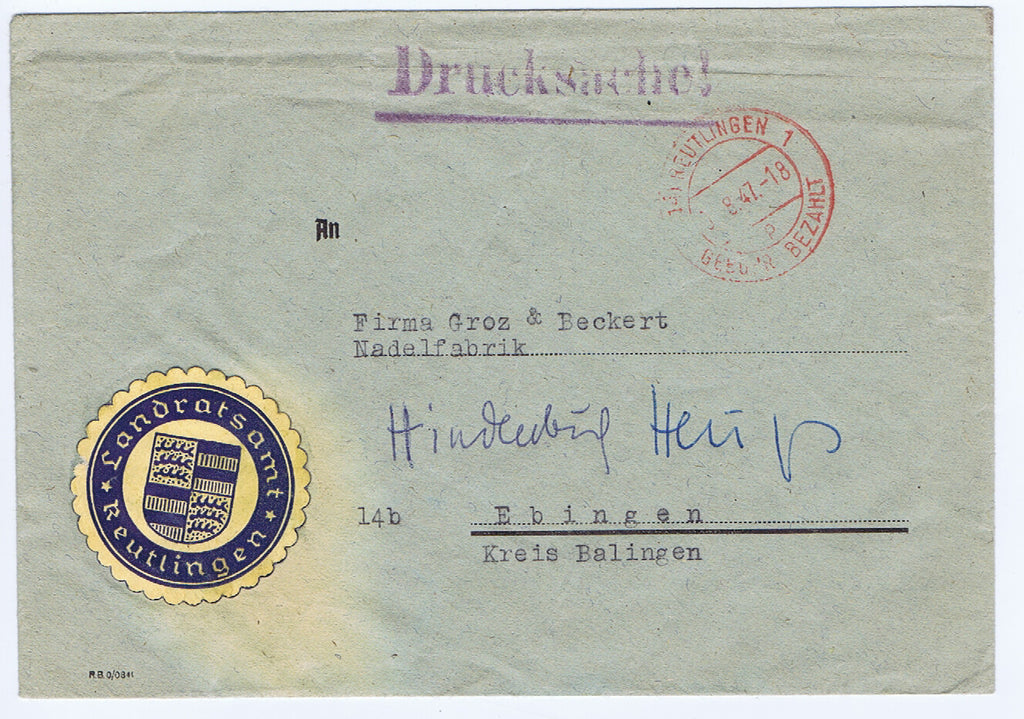 Drucksache!
REUTLINGEN 1
8.47.-18
GEBÜHR BEZAHLT
An
Firma Groz & Beckert
Nadelfabrik
14b Ebingen
Kreis Balingen
Landratsamt
Reutlingen